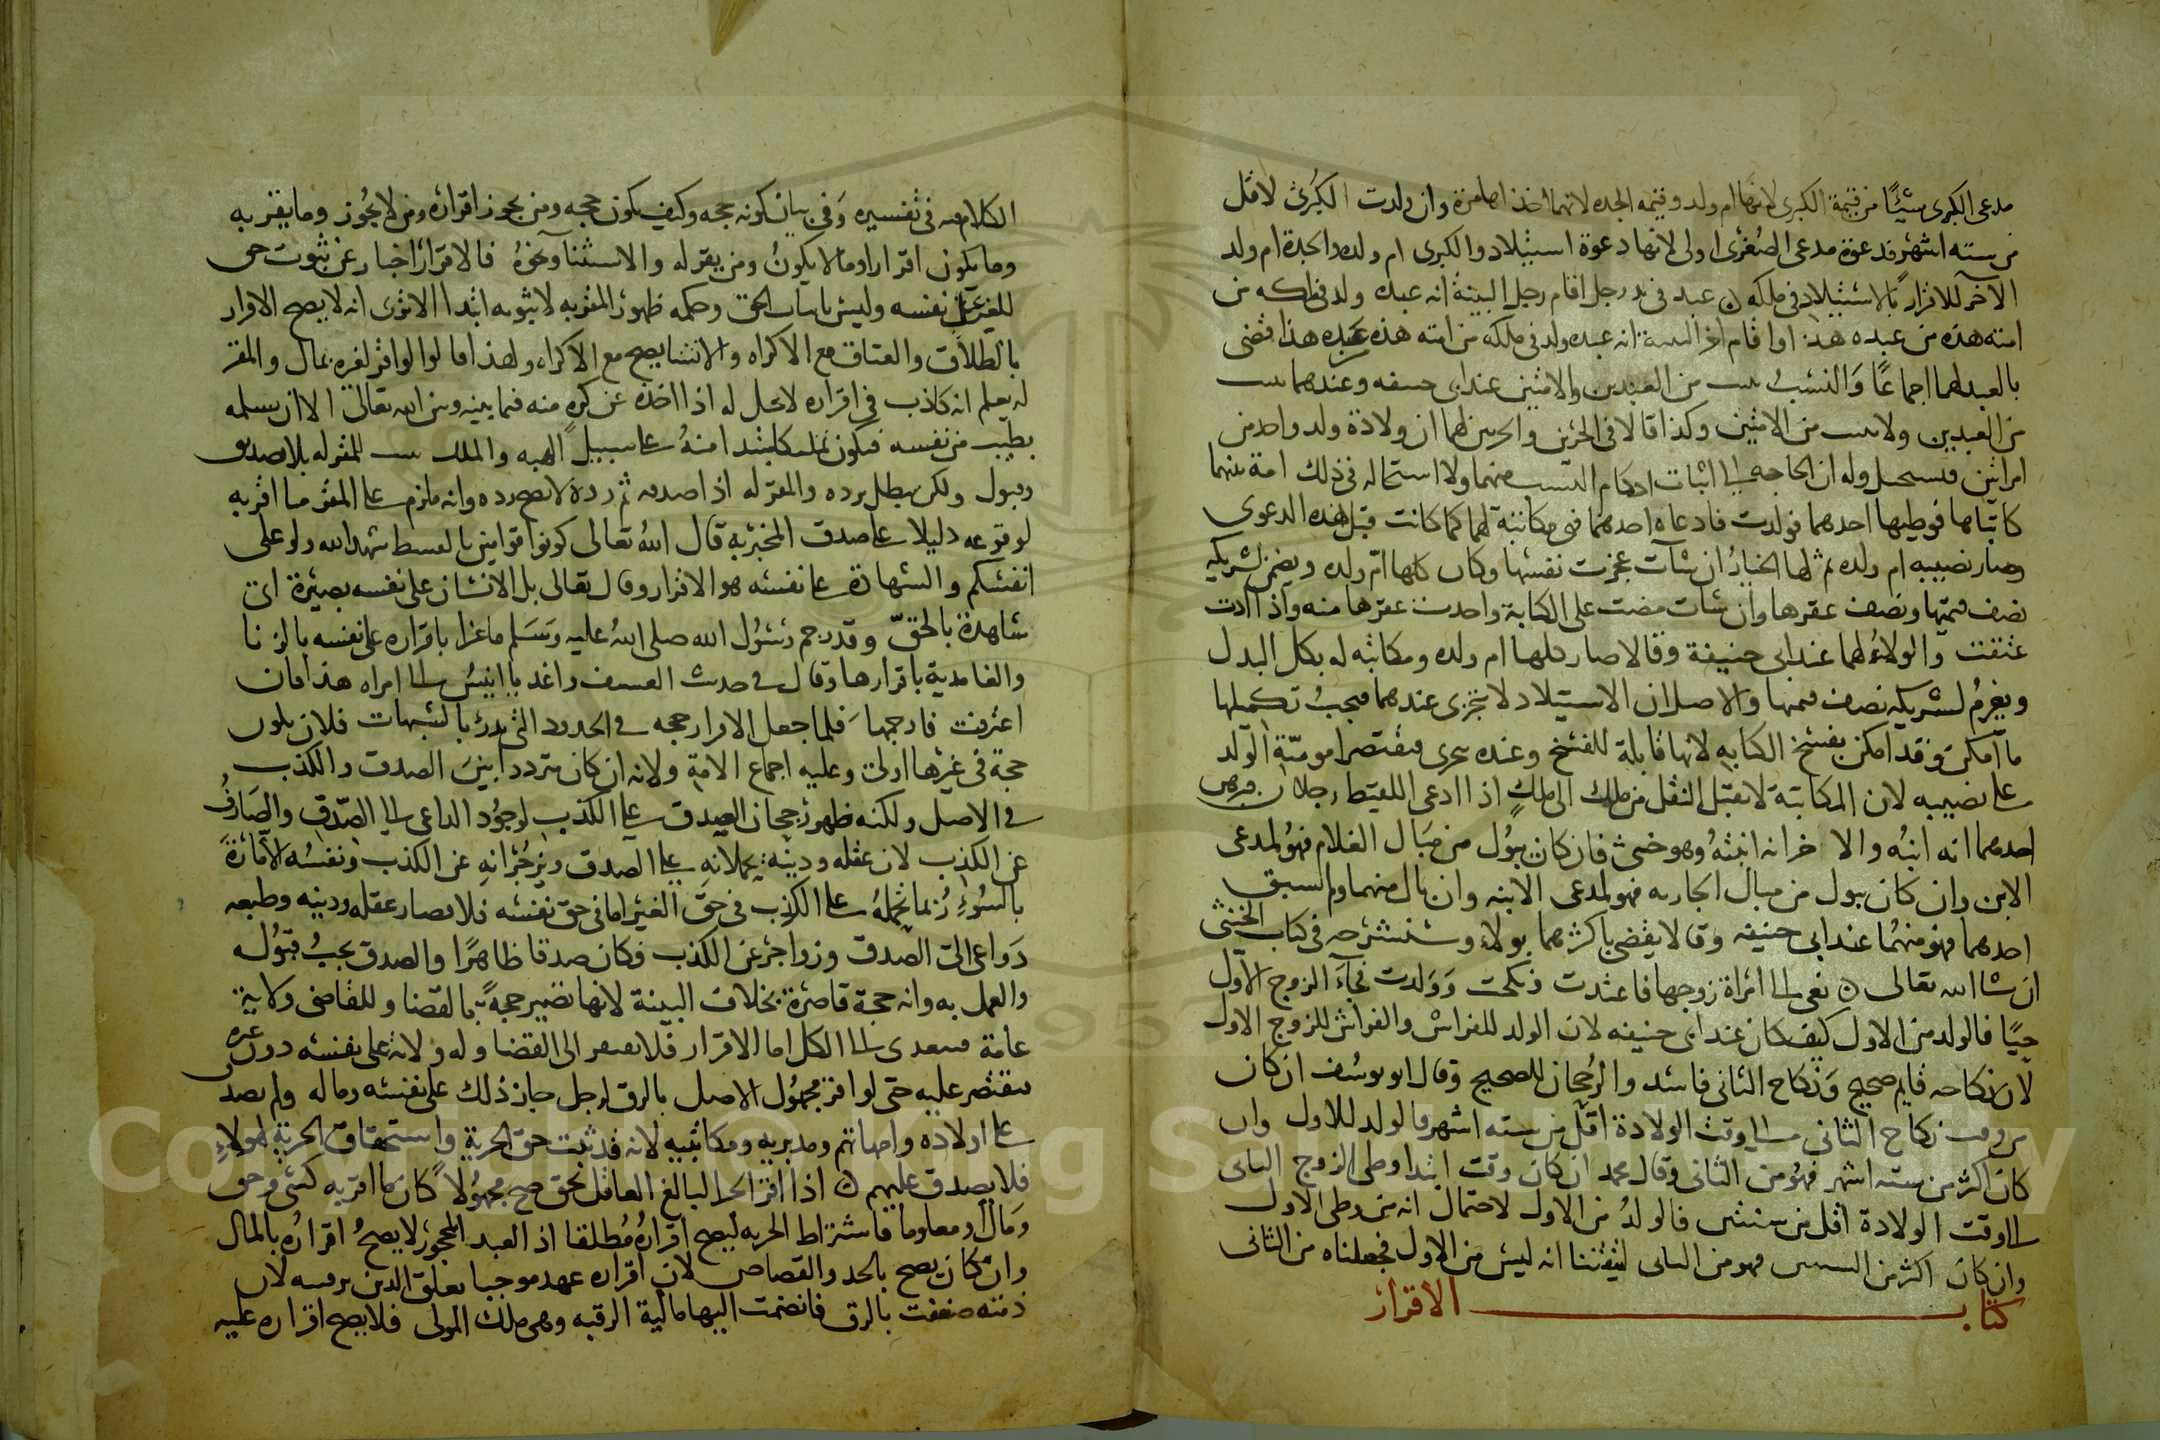 مدعى الكبرى شيئا من قيمة الكبرى لانها ام ولد وقيمه الجده لانهما اخذ اصلهرة وان ولدت الكبرى لاقل
من سته اشهر فدعوة مدعى الصغرى اولى لانها دعوة استيلاد والكبرى ام ولده والجدة ام ولد
الآخر للاقرار بالاستيلاد فى ملكه عبد فى يد رجل اقام رجل البينة انه عبده ولد فى ملكه من
امته هذه من عبده هذا واقام اخر البينة انه عبده ولد فى ملكه من امته هذه من عبده هذا قضى
بالعبد لهما اجماعا والنسب يثبت من العبدين والامتين عند ابى حنيفه وعندهما يثبت
من العبدين ولا يثبت من الامتين وكذا قالا فى الحرتين والحرين لهما ان ولادة ولد واحد من
امراتين فيستحيل وله ان الحاجه الى اثبات احكام النسب منهما ولا استحاله فى ذلك امة بينهما
كاتباها فوطيها احدهما فولدت فادعاه احدهما فهى مكاتبة لهما كما كانت قبل هذه الدعوى
وصار نصيبه ام ولده ثم لها الخيار ان شآت عجزت نفسها وكان كلها ام ولده ويضمن لشريكه
نصف قيمتها ونصف عقرها وان شات مضت على الكتابة واخذت عقرها منه واذا ادت
عتقت والولاء لهما عند ابى حنيفة وقالا صار كلها ام ولده ومكاتبه له بكل البدل
ويغرم لشريكه نصف قيمتها والاصل ان الاستيلاد لا يتجزى عندهما فيجب تكميلها
ما امكن وقد امكن بفسخ الكتابه لانها قابلة للفسخ وعنده يتجزى فيقتصر امومية الولد
على نصيبه لان المكاتبة لا تقبل النقل من ملك الى ملك اذا ادعى اللقيط رجلان
احدهما انه ابنه والا خر انه ابنته وهو خنثى فان كان يبول من مبال الغلام فهو لمدعى
الابن وان كان يبول من مبال الجاريه فهو لمدعى الابنه وان بال منهما ولم يسبق
احدهما فهو منهما عند ابى حنيفه وقالا يقضى باكثرهما بولا وسنشرحه فى كتاب الخنثى
ان شا الله تعالى نعى الى امراة زوجها فاعتدت ونكحت وولدت فجآء الزوج الاول
حيا فالولد من الاول كيف كان عند ابى حنيفه لان الولد للفراش والفراش للزوج الاول
لان نكاحه قايم صحيح ونكاح الثانى فاسد والرجحان للصحيح وقال ابو يوسف ان كان
من وقت نكاح الثانى الى وقت الولادة اقل من سته اشهر فالولد للاول وان
كان اكثر من سته اشهر فهو من الثانى وقال محمد ان كان وقت ابتدا وطى الزوج الثانى
الى وقت الولادة اقل من سنتين فالولد من الاول لاحتمال انه من وطى الاول
وان كان اكثر من السنتين فهو من الثانى لتيقننا انه ليس من الاول فجعلناه من الثانى
كتاب الاقرار
الكلام فيه فى تفسيره وفى بيان كونه حجه وكيف يكون حجه ومن يجوز اقراره ومن لا يجوز وما يقر به
وما يكون اقرارا وما لا يكون ومن يقر له والاستثنا ونحوه فالاقرار اخبار عن ثبوت حق
للغير على نفسه وليس باثبات الحق وحكمه ظهور المقر به لا ثبوته ابتدا الا ترى انه لا يصح الاقرار
بالطلاق والعتاق مع الاكراه والانشا يصح مع الاكراه ولهذا قالوا لو اقر لغيره بمال والمقر
له يعلم انه كاذب فى اقراره لا يحل له اذا اخذه عن كره منه فيما بينه وبين الله تعالى الا ان يسلمه
بطيب من نفسه فيكون تمليكا مبتدا منه على سبيل الهبه والملك يثبت للمقر له بلا تصديق
وقبول ولكن يبطل برده والمقر له اذا صدقه ثم رده لا يصح رده وانه ملزم على المقر ما اقر به
لوقوعه دليلا على صدق المخبر به قال الله تعالى كونوا قوامين بالقسط شهدا لله ولو على
انفسكم والشهادة على نفسه هو الاقرار وقال تعالى بل الانسان على نفسه بصيرة اى
شاهدة بالحق وقد رجم رسول الله صلى الله عليه وسلم ماعزا باقراره على نفسه بالزنا
والغامدية باقرارها وقال فى حديث العسيف واغد يا انيس الى امراه هذا فان
اعترفت فارجمها فلما جعل الاقرار حجه فى الحدود التى تدرئ بالشبهات فلان يكون
حجة فى غيرها اولى وعليه اجماع الامة ولانه ان كان مترددا بين الصدق والكذب
فى الاصل ولكنه ظهر رجحان الصدق على الكذب لوجود الداعى الى الصدق والصارف
عن الكذب لان عقله ودينه يحملانه على الصدق ويزجرانه عن الكذب ونفسه الامارة
بالسوء ربما تحمله على الكذب فى حق الغير اما فى حق نفسه فلا فصار عقله ودينه وطبعه
دواعى الى الصدق وزواجر عن الكذب فكان صدقا ظاهرا والصدق يجب قبوله
والعمل به وانه حجة قاصرة بخلاف البينة لانها تصير حجة بالقضا وللقاضى ولاية
عامة فيتعدى الى الكل اما الاقرار فلا يفتقر الى القضا وله ولاية على نفسه دون غيره
فيقتصر عليه حتى لو اقر مجهول الاصل بالرق لرجل جاز ذلك على نفسه وماله ولم يصدق
على اولاده وامهاتهم ومدبريه ومكاتبيه لانه قد ثبت حق الحرية واستحقاق الحرية لهولاء
فلا يصدق عليهم اذا اقر الحر البالغ العاقل بحق صح مجهولا كان ما اقر به كشئ وحق
ومال او معلوما فاشتراط الحريه ليصح اقراره مطلقا اذ العبد المحجور لا يصح اقراره بالمال
وان كان يصح بالحد والقصاص لان اقراره عهد موجبا تعلق الدين برقبته لان
ذمته ضعفت بالرق فانضمت اليها مالية الرقبه وهى ملك المولى فلا يصح اقراره عليه